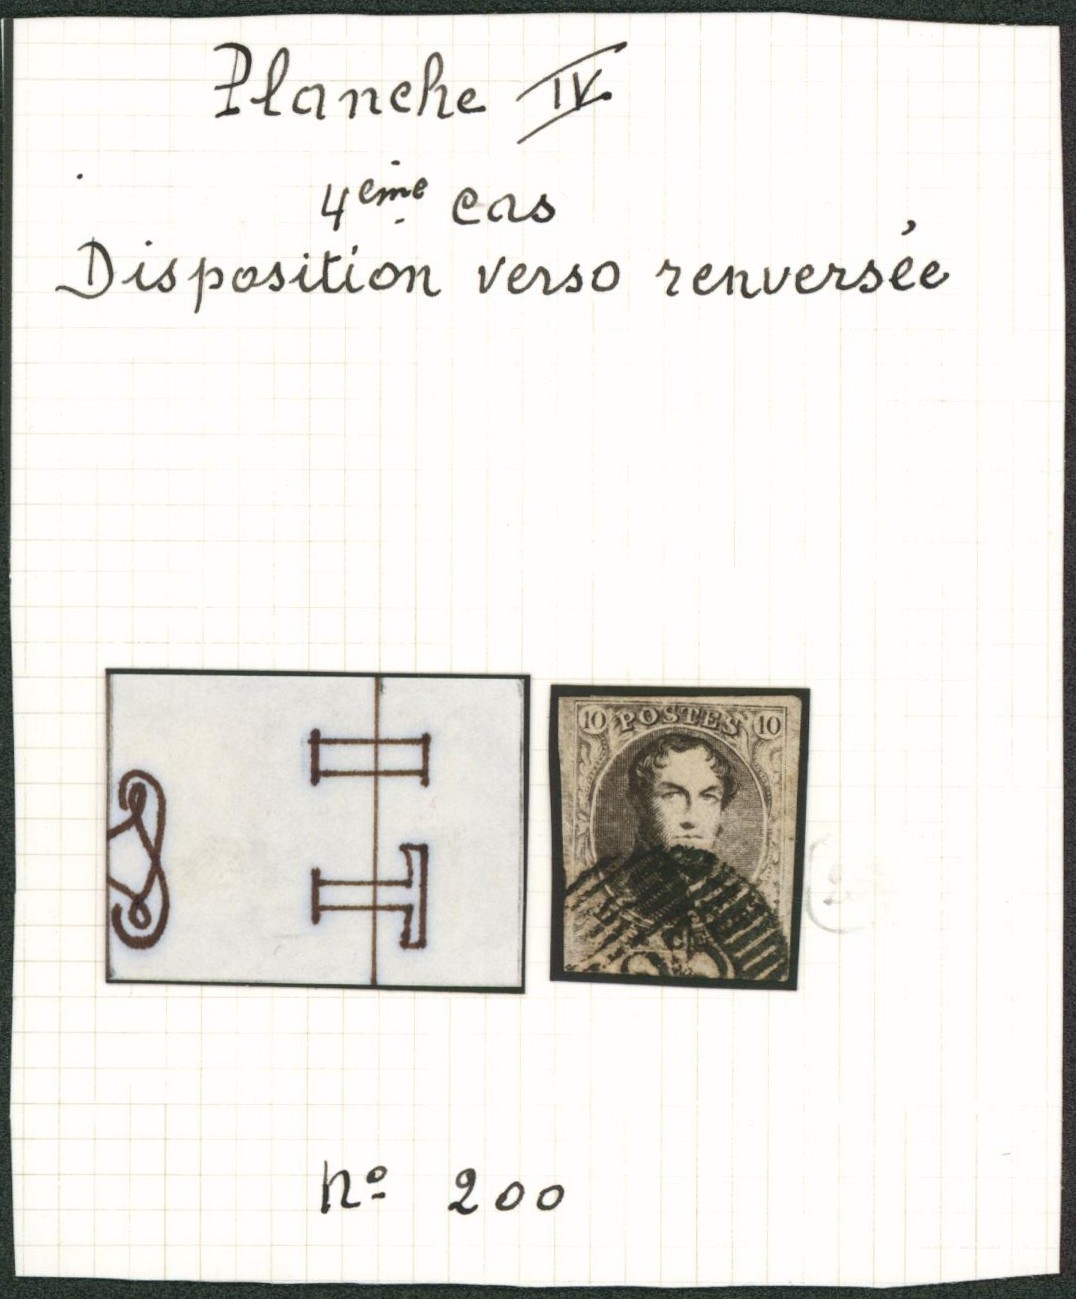 Planche IV.
4ème cas
Disposition verso renversée
10 POSTES 10
nº 200